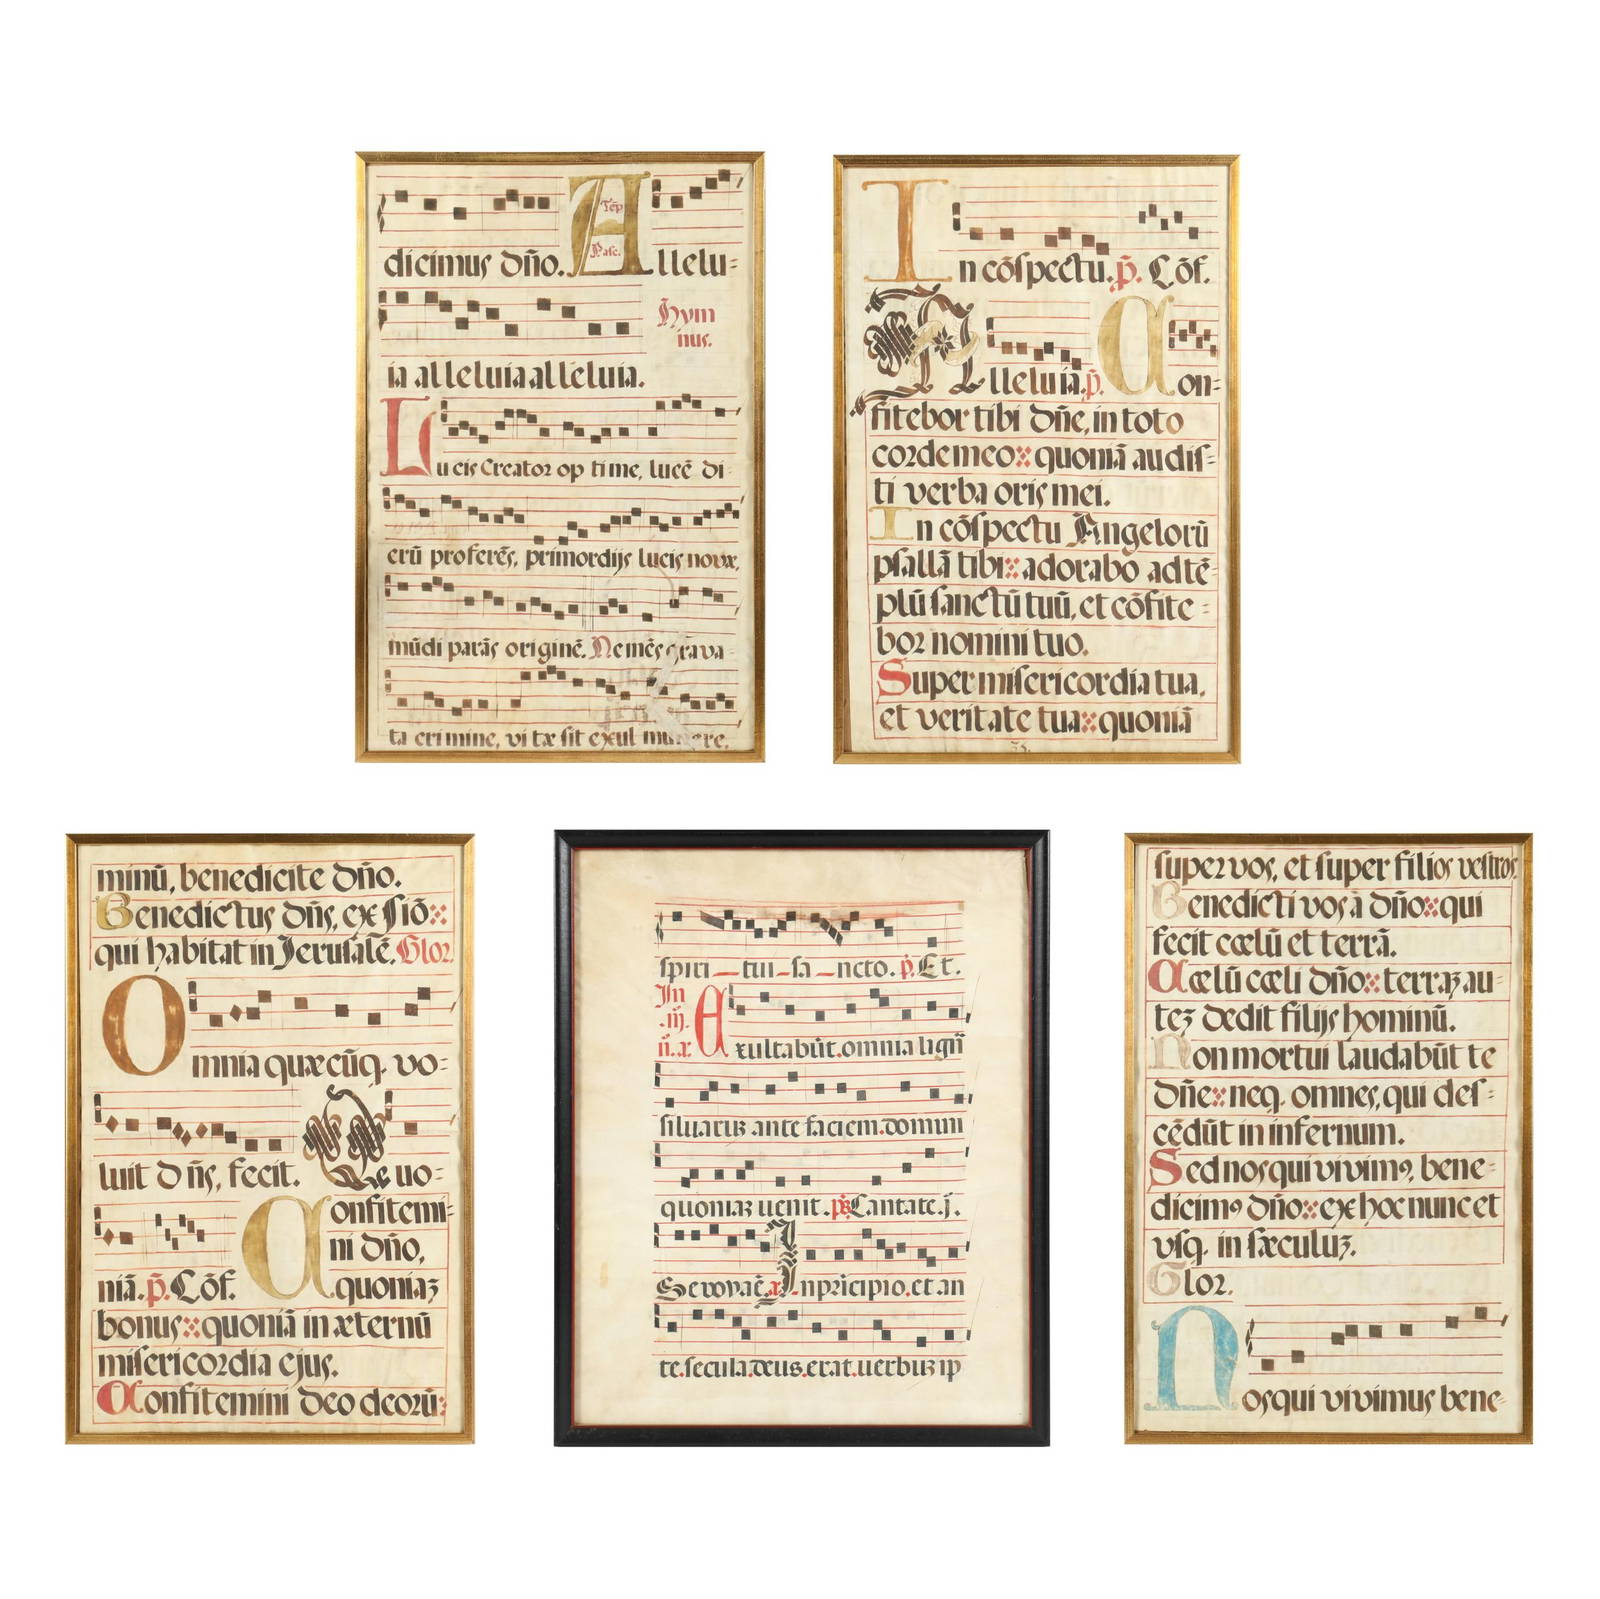 dicimus dño. Allelu=
Tẽp
Pasc.
ia alleluia alleluia.
Hym
nus.
Lucis Creator optime, lucẽ di=
erũ proferẽs, primordijs lucis novæ,
mũdi parãs originẽ. Ne mẽs grava=
ta crimine, vitæ sit exul munere,
In cõspectu. p̃. Cõf.
Alleluia. p̃. Con=
fitebor tibi dñe, in toto
corde meo quoniã audis=
ti verba oris mei.
In cõspectu Angelorũ
psallã tibi adorabo ad tẽ=
plũ sanctũ tuũ, et cõfite=
bor nomini tuo.
Super misericordia tua,
et veritate tua quoniã
minũ, benedicite dño.
Benedictus dñs, ex Siõ
qui habitat in Jerusalẽ. Glor.
Omnia quæcũq. vo=
luit dñs, fecit. Quo=
niã. p̃. Cõf.
Confitemi=
ni dño,
quoniaʒ
bonus quoniã in æternũ
misericordia ejus.
Confitemini Deo deorũ
spiri_tui_sa_ncto. p̃. Et.
In
.iij.
n̄. x.
Exultabũt. omnia lign̄
siluaruʒ ante faciem. domini
quoniaʒ uenit. ps̃ Cantate. j.
Seuouaẽ. a Inprĩcipio. et an
te. secula. deus. erat. uerbuʒ ip
super vos, et super filios vestros.
Benedicti vos a dño qui
fecit cœlũ et terrã.
Cœlũ cœli dño terraʒ au=
teʒ dedit filijs hominũ.
Non mortui laudabũt te
dñe neq. omnes, qui des=
cẽdũt in infernum.
Sed nos qui vivimꝰ, bene=
dicimꝰ dño ex hoc nunc et
vsq. in sæculuʒ.
Glor.
Nos qui vivimus bene=